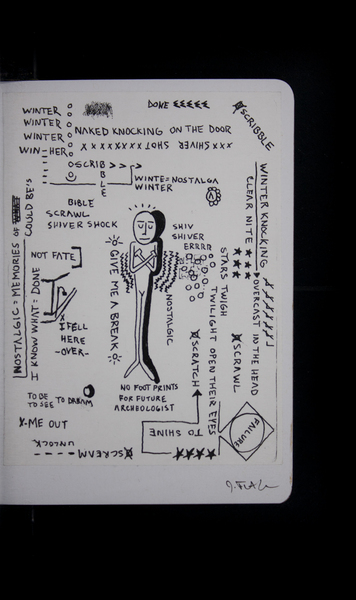 WINTER
WINTER
WINTER
WIN-HER
DONE
SCRIBBLE
NAKED KNOCKING ON THE DOOR
XXX SHIVER SHOT XXXXXXXXX
SCRIB>>>
BLE
WINTE=NOSTALGA
WINTER
BIBLE
SCRAWL
SHIVER SHOCK
NOSTALGIC=MEMORIES OF
COULD BE'S
I KNOW WHAT= DONE
NOT FATE
I FELL
HERE
-OVER-
GIVE ME A BREAK
SHIV
SHIVER
ERRRR
NOSTALGIC
STARS TWIGH
TWILIGHT OPEN THEIR EYES
SCRATCH
WINTER KNOCKING
CLEAR NITE ★★★
OVERCAST IN THE HEAD
SCRAWL
NO FOOT PRINTS
FOR FUTURE
ARCHEOLOGIST
TO BE TO DREAM
TO SEE
X-ME OUT
UNLOCK
SCREAM
TO SHINE
★★★★
FAILURE